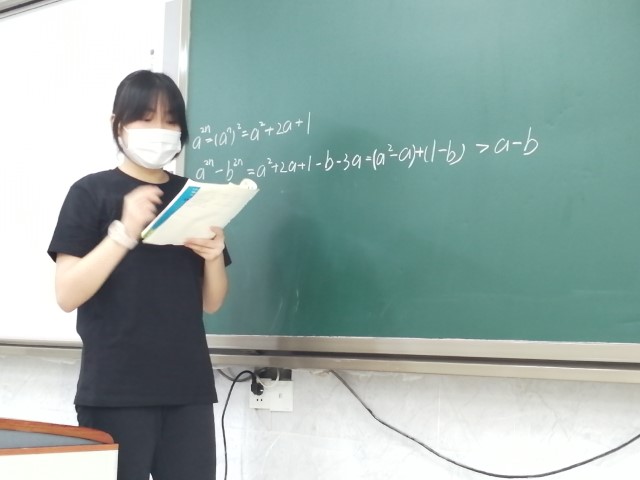 a²ⁿ=(aⁿ)²=a²+2a+1
a²ⁿ-b²ⁿ=a²+2a+1-b-3a=(a²-a)+(1-b) >a-b